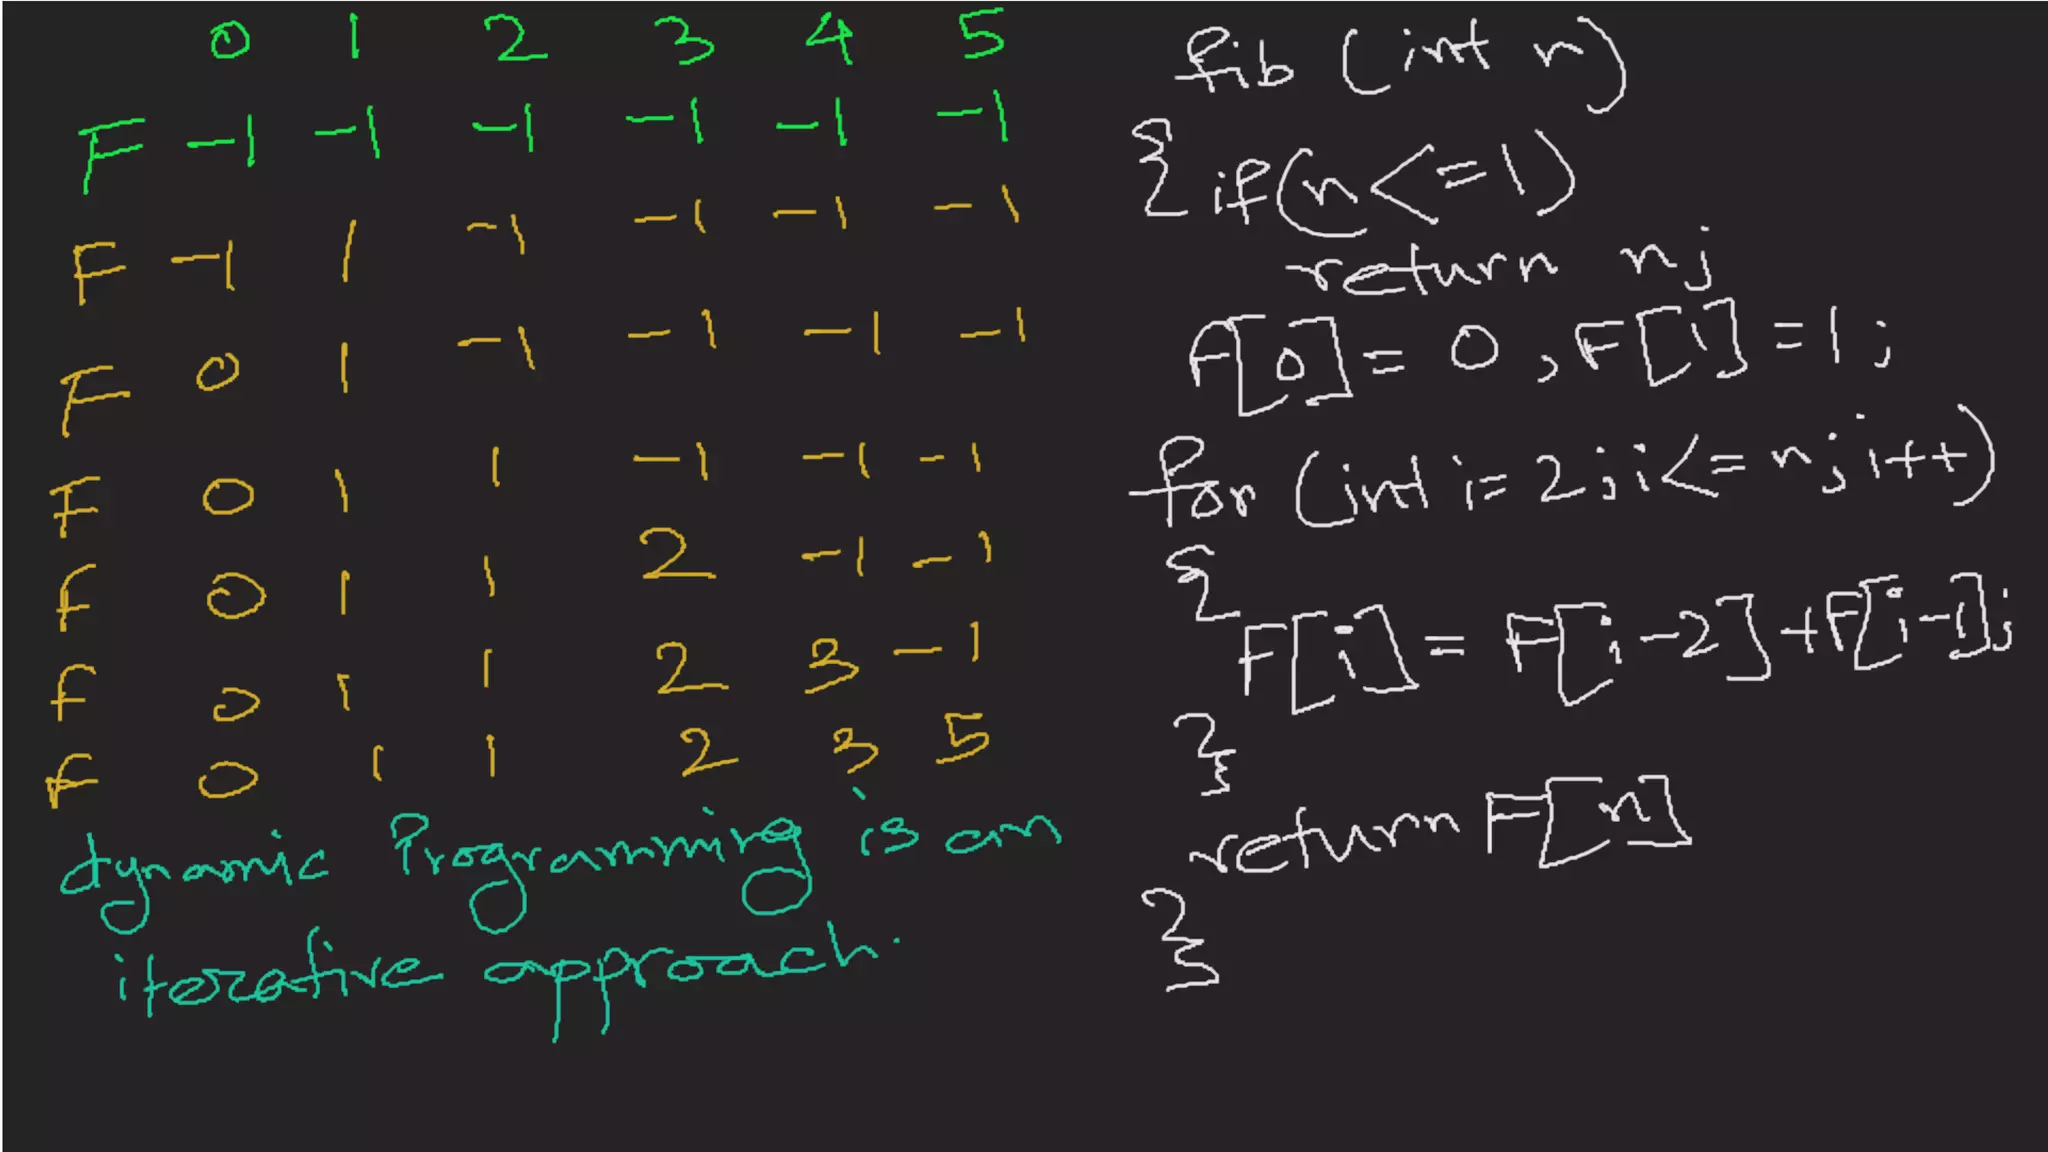 0 1 2 3 4 5
F -1 -1 -1 -1 -1 -1
F -1 1 -1 -1 -1 -1
F 0 1 -1 -1 -1 -1
F 0 1 1 -1 -1 -1
f 0 1 1 2 -1 -1
f 0 1 1 2 3 -1
f 0 1 1 2 3 5
dynamic Programming is an
iterative approach.
fib (int n)
{ if(n<=1)
return n;
F[0] = 0, F[1] = 1;
for (int i= 2; i<= n; i++)
{
F[i] = F[i-2]+F[i-1];
}
return F[n]
}